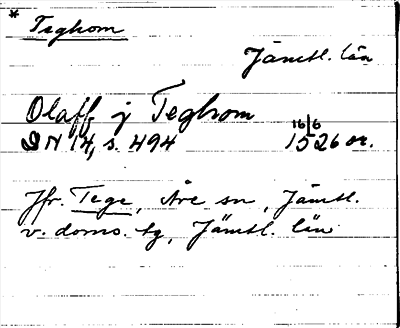 * Teghom
Jämtl. län
Olaff j Teghom
DN 14, s. 494 16/6 1526 or.
Jfr. Tege, Åre sn, Jämtl.
v. doms. tg, Jämtl. län